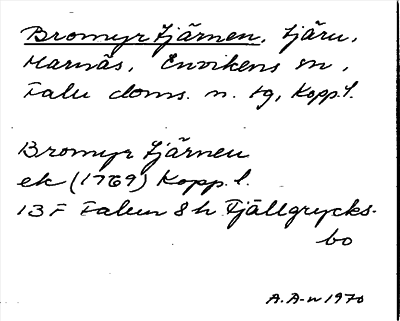 Bromyr tjärnen, tjärn,
Marnäs, Envikens sn,
Falu doms. n. tg, Kopp. l.
Bromyr tjärnen
ek (1769) Kopp. l.
13 F Falun 8 h Fjällgrycks-
bo
A. A-n 1970